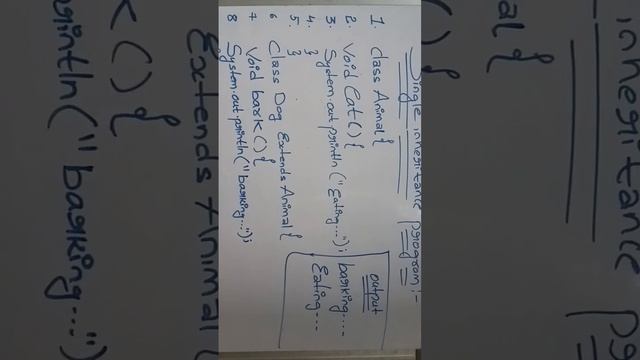 Single inheritance program:-
1. class Animal{
2. Void Eat() {
3. System.out.println ("Eating...");
4. }
5. }
6 Class Dog Extends Animal{
7 Void bark () {
8 System.out.println("barking...");
output
barking....
Eating---